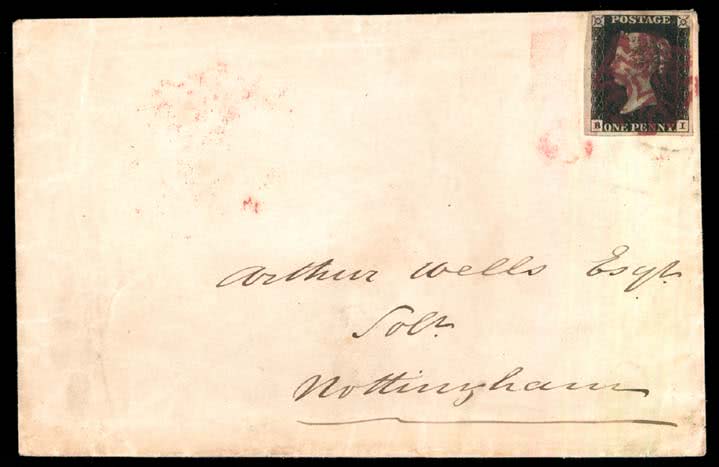 POSTAGE
B I
ONE PENNY
Arthur Wells Esqr.
Solr.
Nottingham